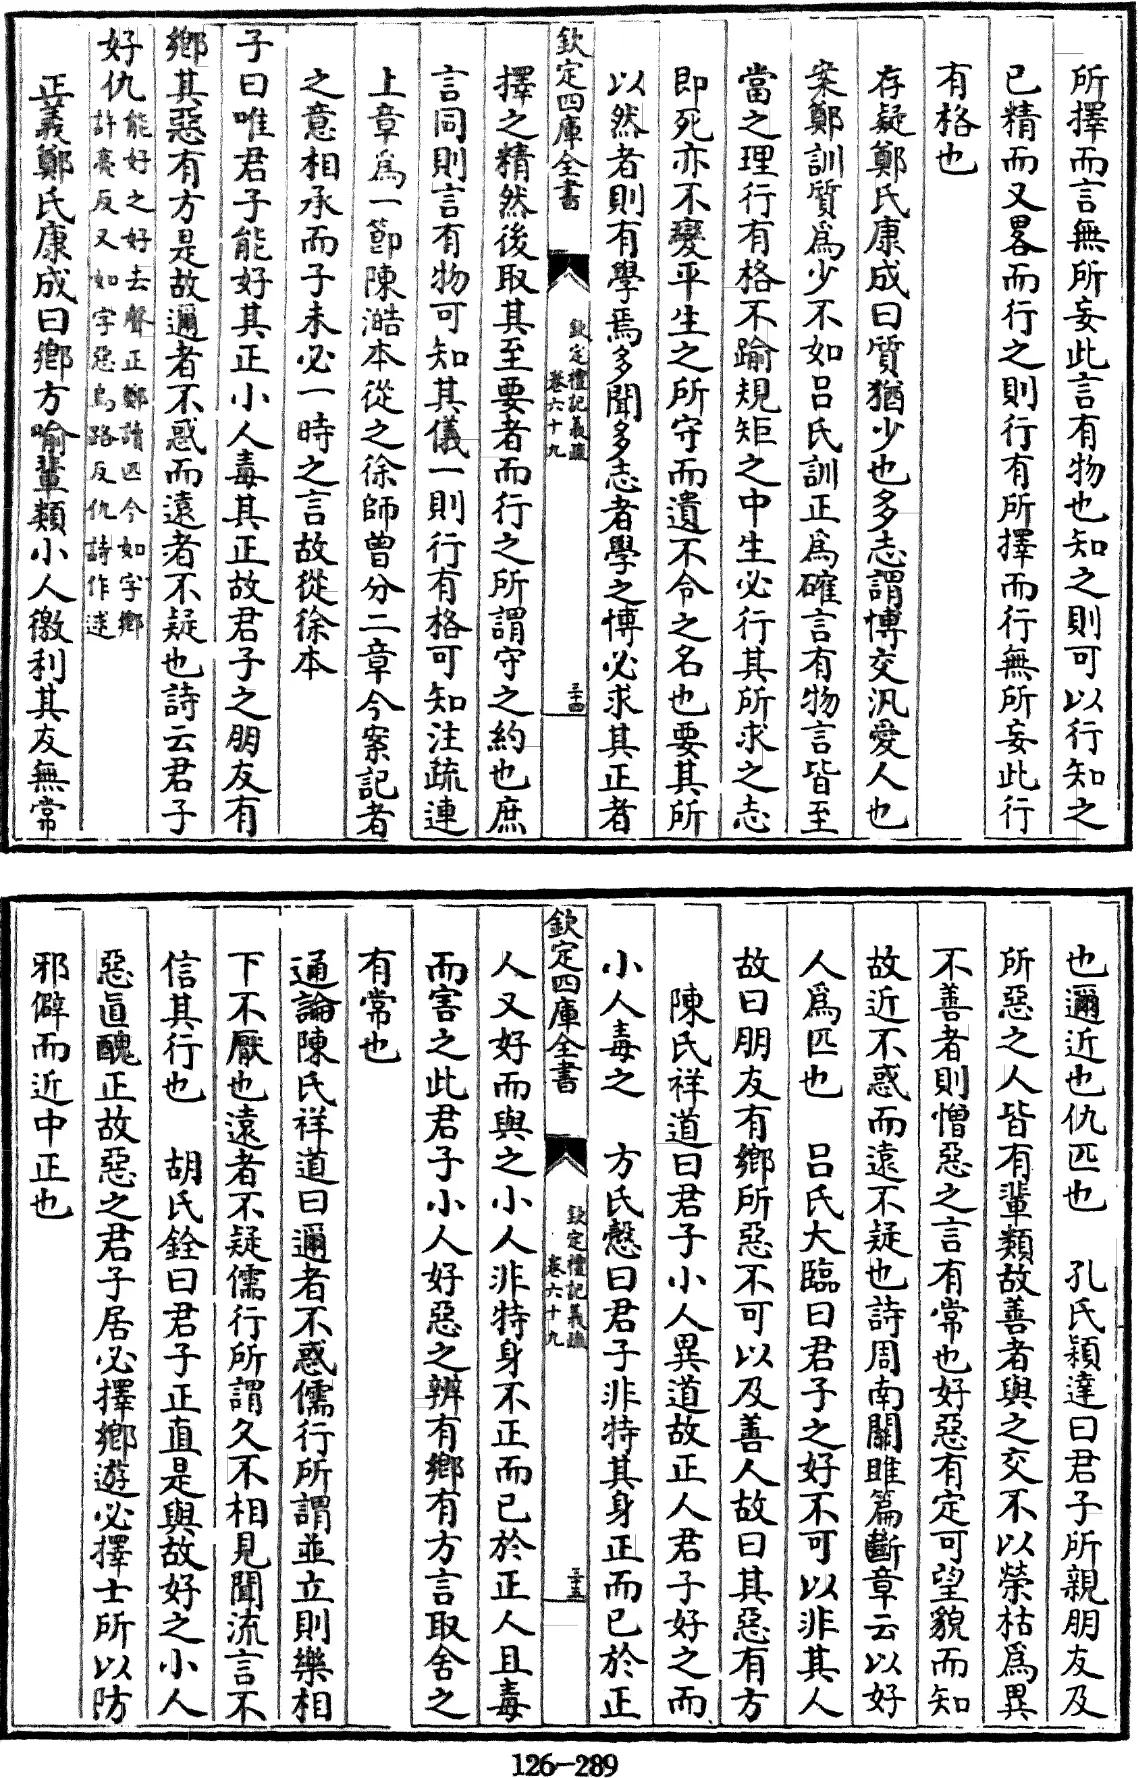 所擇而言無所妄此言有物也知之則可以行知之
已精而又畧而行之則行有所擇而行無所妄此行
有格也
存疑鄭氏康成曰質猶少也多志謂博交汎愛人也
案鄭訓質爲少不如呂氏訓正爲確言有物言皆至
當之理行有格不踰規矩之中生必行其所求之志
即死亦不變平生之所守而遺不令之名也要其所
以然者則有學焉多聞多志者學之博必求其正者
欽定四庫全書
欽定禮記義疏
卷六十九
三十四
擇之精然後取其至要者而行之所謂守之約也庶
言同則言有物可知其儀一則行有格可知注疏連
上章爲一節陳澔本從之徐師曾分二章今案記者
之意相承而子未必一時之言故從徐本
子曰唯君子能好其正小人毒其正故君子之朋友有
鄉其惡有方是故邇者不惑而遠者不疑也詩云君子
好仇能好之好去聲正鄭讀匹今如字鄉
許亮反又如字惡烏路反仇詩作逑
正義鄭氏康成曰鄉方喻輩類小人徼利其友無常
也邇近也仇匹也 孔氏穎達曰君子所親朋友及
所惡之人皆有輩類故善者與之交不以榮枯爲異
不善者則憎惡之言有常也好惡有定可望貌而知
故近不惑而遠不疑也詩周南關雎篇斷章云以好
人爲匹也 呂氏大臨曰君子之好不可以非其人
故曰朋友有鄉所惡不可以及善人故曰其惡有方
陳氏祥道曰君子小人異道故正人君子好之而
小人毒之 方氏慤曰君子非特其身正而已於正
欽定四庫全書
欽定禮記義疏
卷六十九
三十五
人又好而與之小人非特身不正而已於正人且毒
而害之此君子小人好惡之辨有鄉有方言取舍之
有常也
通論陳氏祥道曰邇者不惑儒行所謂並立則樂相
下不厭也遠者不疑儒行所謂久不相見聞流言不
信其行也 胡氏銓曰君子正直是與故好之小人
惡直醜正故惡之君子居必擇鄉遊必擇士所以防
邪僻而近中正也
126-289